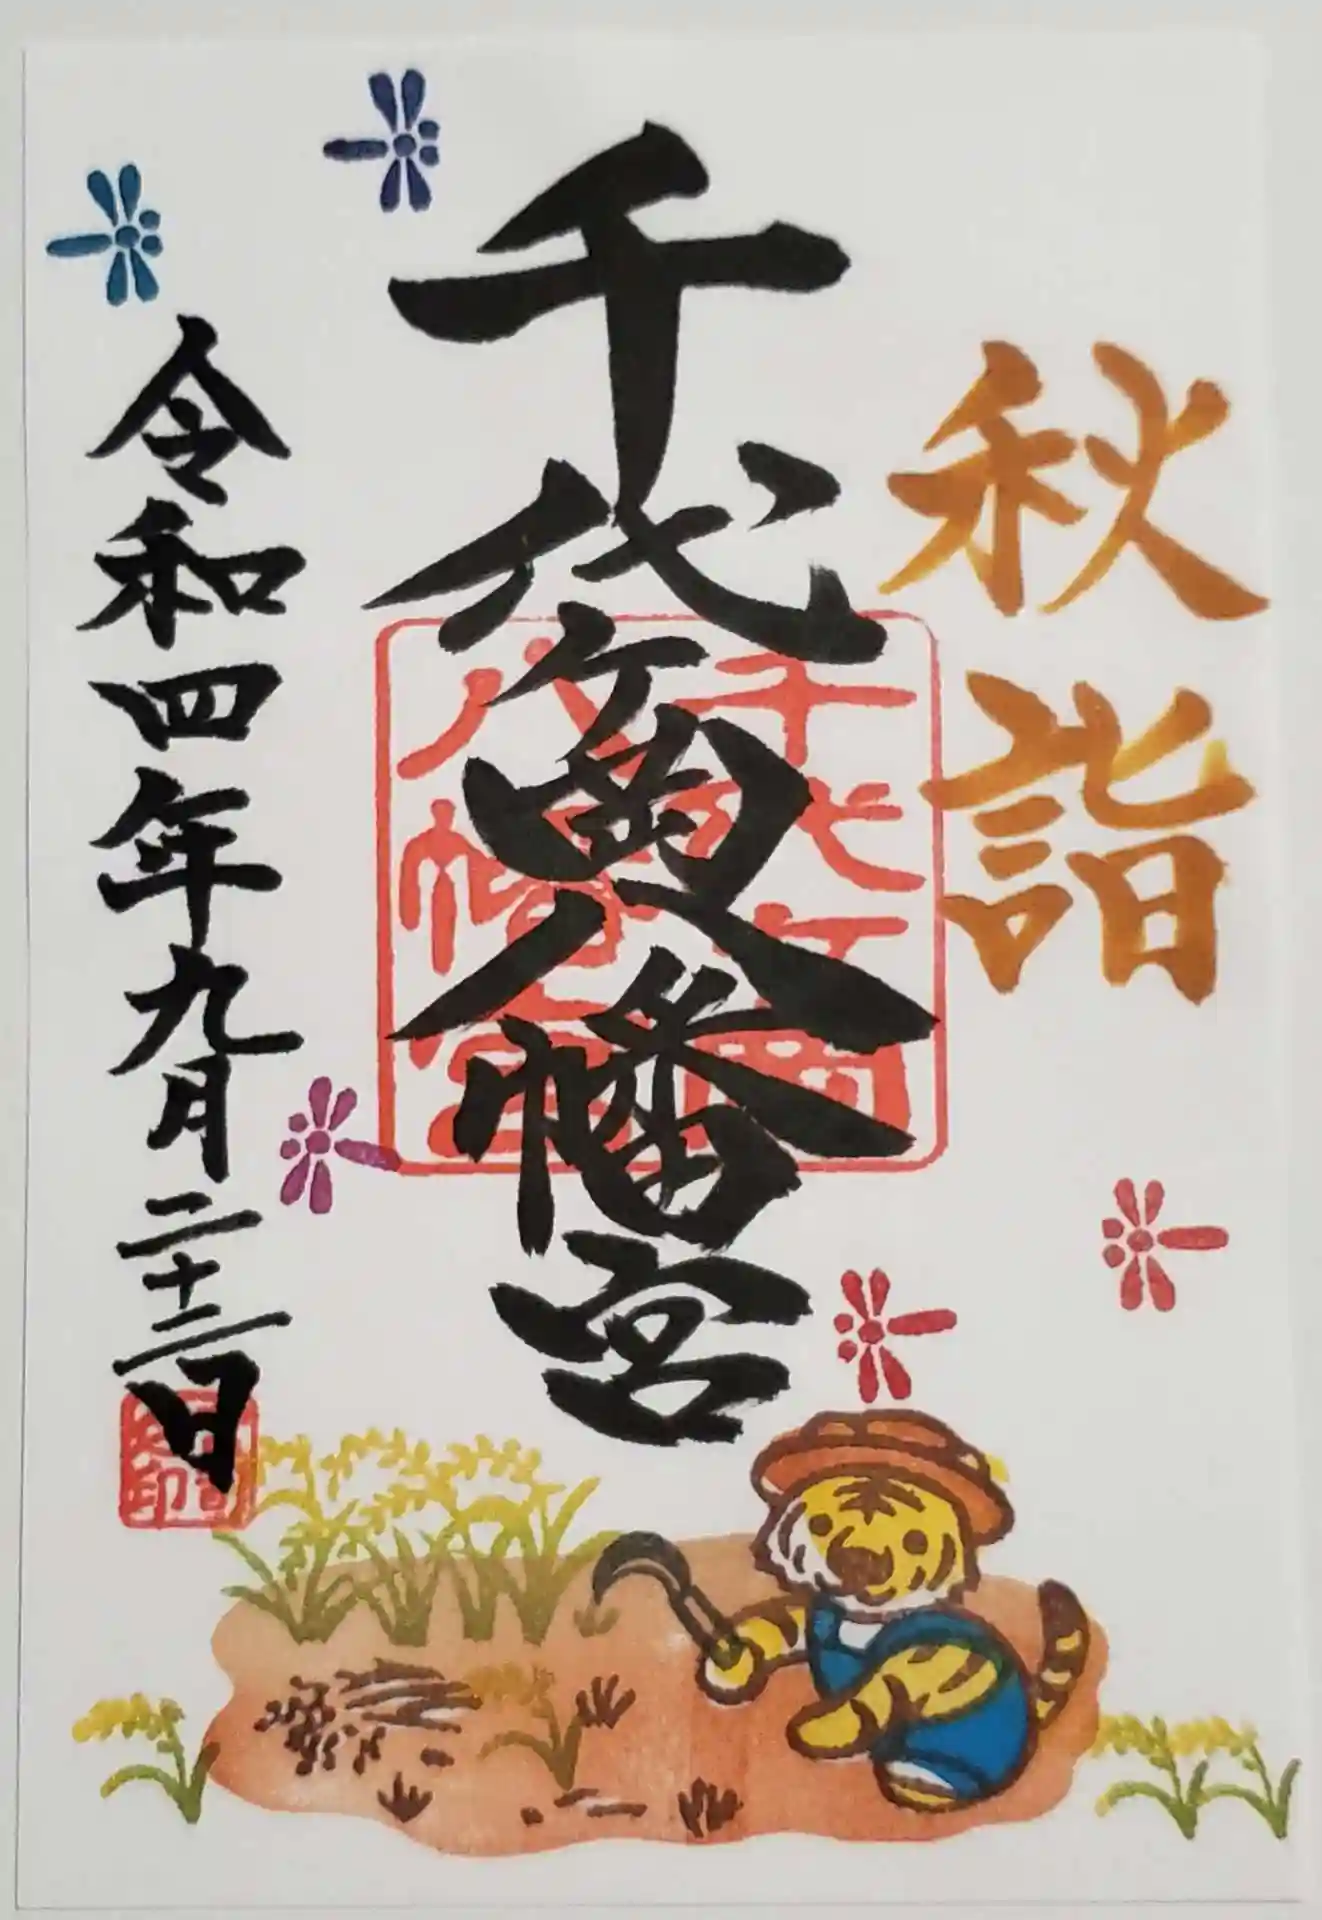 秋詣
千代ヶ岡八幡宮
千代ヶ岡
八幡宮
令和四年九月二十二日